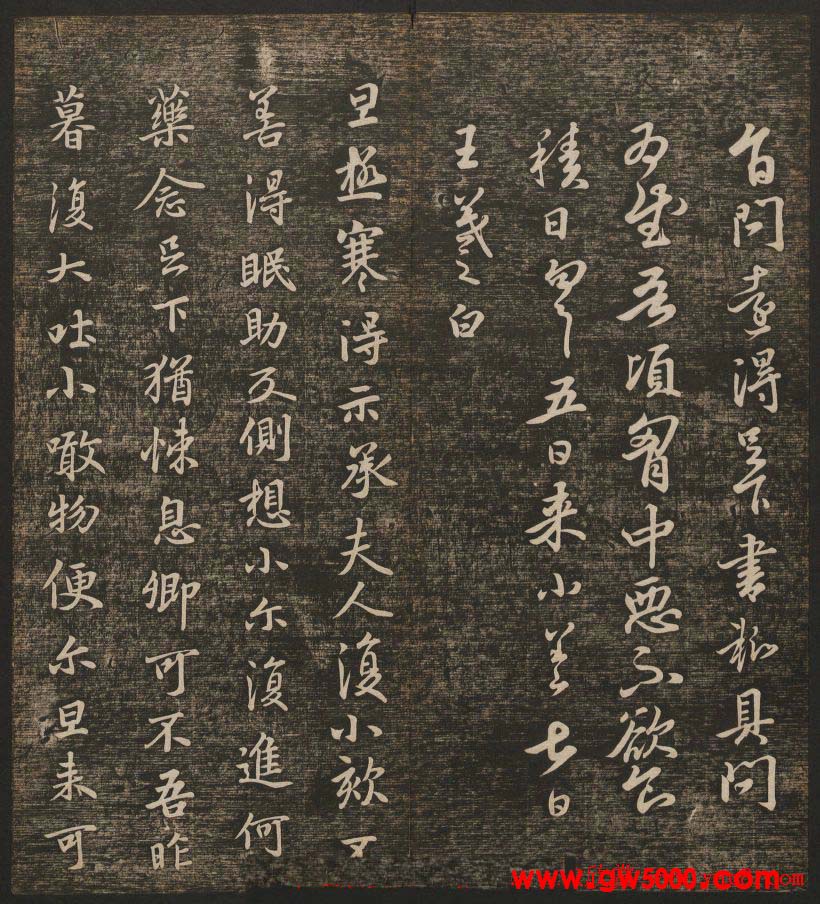 旨問壹得足下書粗具問
為慰吾頃胸中惡不欲食
積日匆匆五日来小差七日
王羲之白
旦極寒得示承夫人復小欬不
善得眠助反側想小尒復進何
藥念足下猶悚息卿可不吾昨
暮復大吐小噉物便尒旦来可
www.gw5000.com